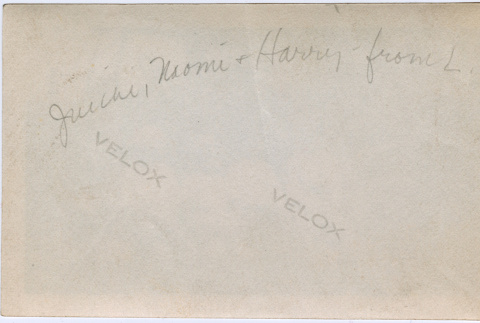 Naomi + Harry - from L.
VELOX
VELOX